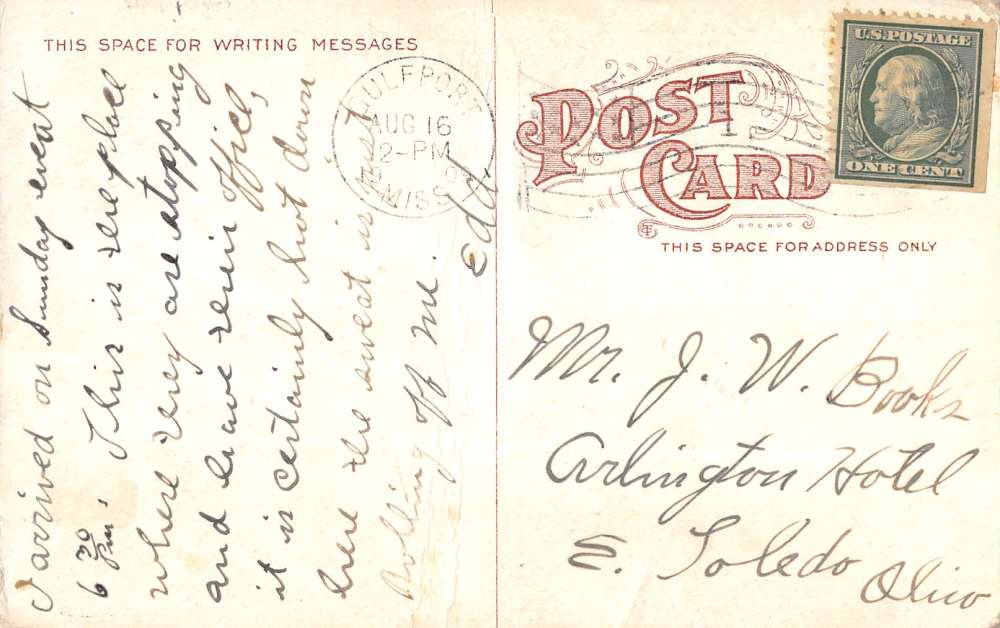 THIS SPACE FOR WRITING MESSAGES
I arrived on Sunday eve at
6 30 Pm. This is the place
where they are stopping
and have their office,
it is certainly hot down
here the sweat is just
rolling off me.
Ed
GULFPORT
AUG 16
2-PM
MISS
POST
CARD
THIS SPACE FOR ADDRESS ONLY
U.S. POSTAGE
ONE CENT
Mr. J. W. Books
Arlington Hotel
E. Toledo
Ohio